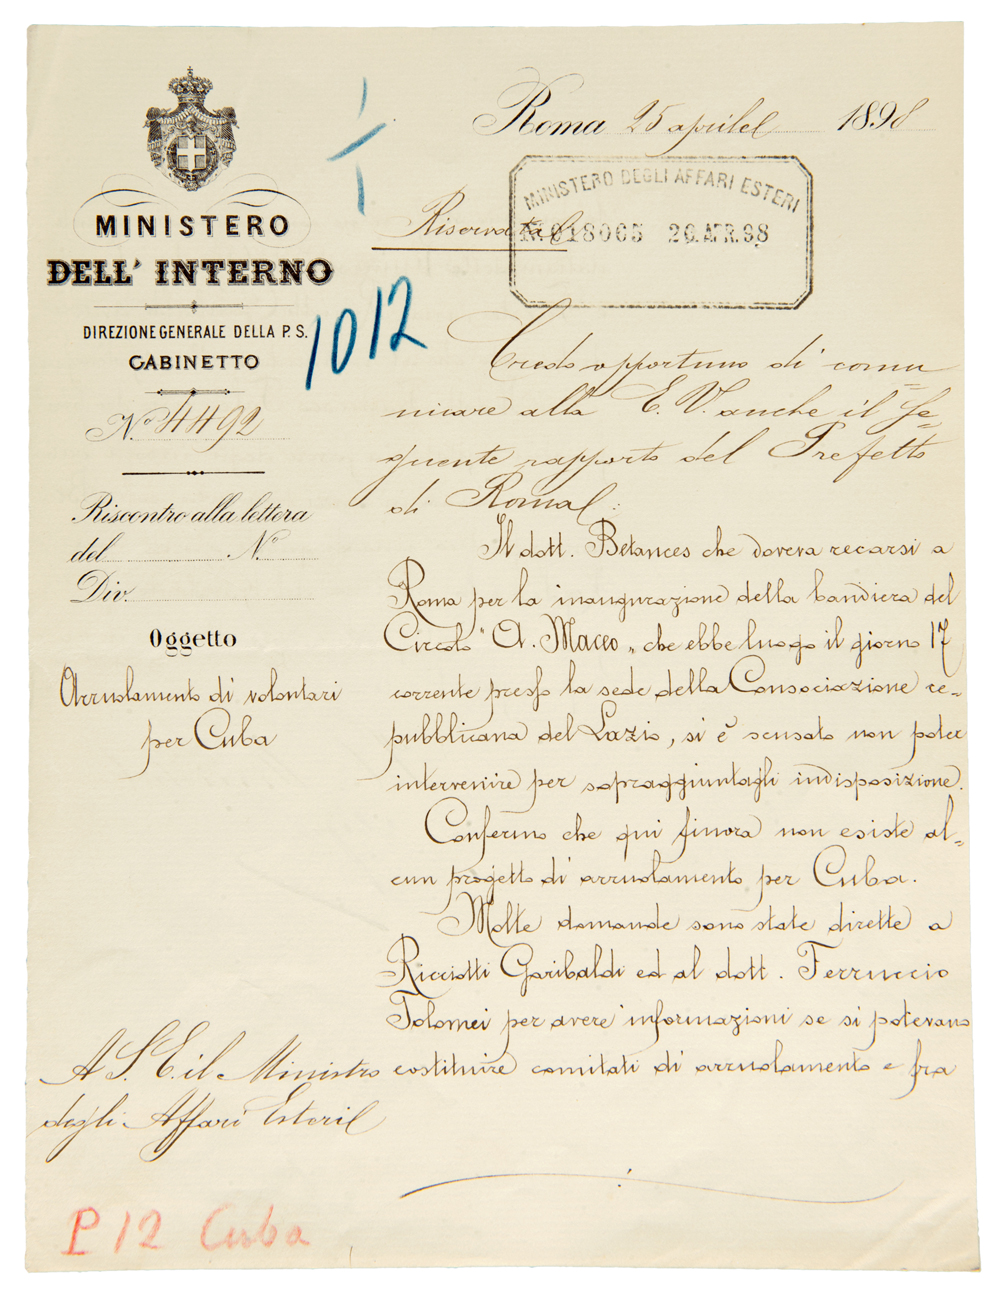 Roma 25 aprile 1898
MINISTERO DEGLI AFFARI ESTERI
N. 018065 26.APR.98
Riservata
MINISTERO
DELL' INTERNO
DIREZIONE GENERALE DELLA P. S.
GABINETTO
1012
N.º 4492
Riscontro alla lettera
del N.º
Div.
Oggetto
Arruolamento di volontari
per Cuba
Credo opportuno di comu
nicare alla E. V. anche il se=
guente rapporto del Prefetto
di Roma:
Il dott. Betances che doveva recarsi a
Roma per la inaugurazione della bandiera del
Circolo "A. Maceo", che ebbe luogo il giorno 17
corrente presso la sede della Consociazione re=
pubblicana del Lazio, si è scusato non poter
intervenire per sopraggiuntagli indisposizione.
Confermo che qui finora non esiste al=
cun progetto di arruolamento per Cuba.
Molte domande sono state dirette a
Ricciotti Garibaldi ed al dott. Ferruccio
Tolomei per avere informazioni se si potevano
costituire comitati di arruolamento e fra
A S. E. il Ministro
degli Affari Esteri
P 12 Cuba